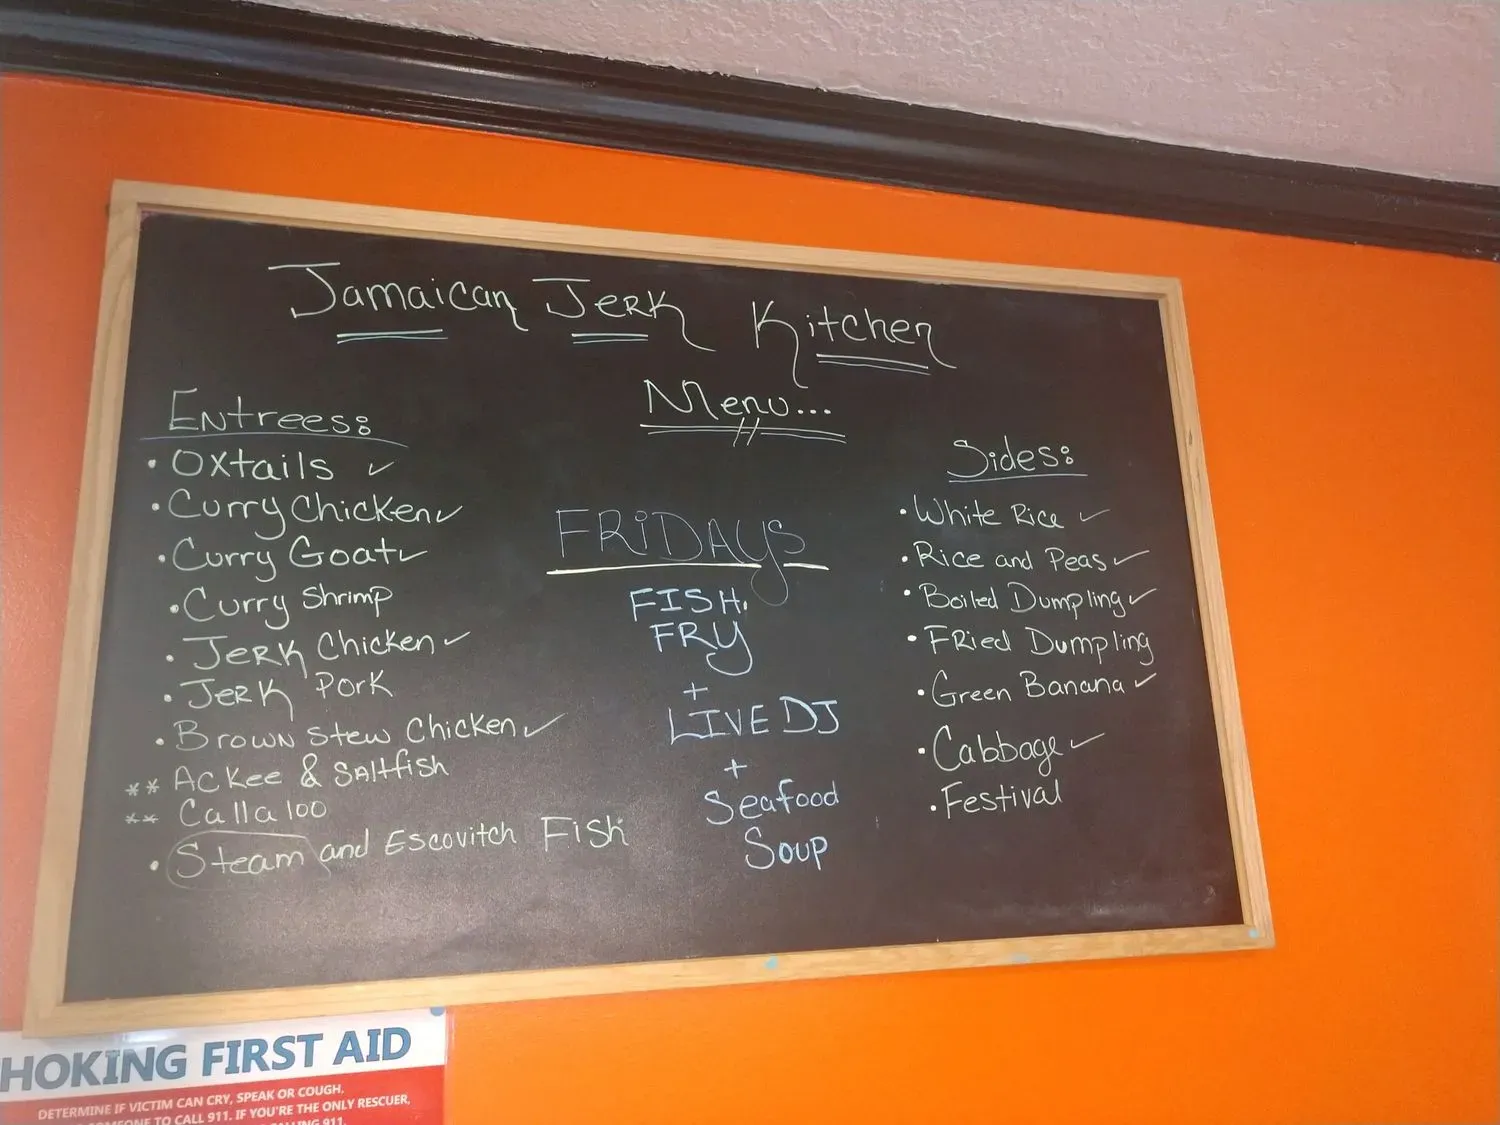 Jamaican Jerk Kitchen
Menu...
Entrees:
• Oxtails ✓
• Curry Chicken ✓
• Curry Goat ✓
• Curry Shrimp
• Jerk Chicken ✓
• Jerk Pork
• Brown Stew Chicken ✓
** Ackee & Saltfish
** Callaloo
• Steam and Escovitch Fish
FRiDAYS
FISH
FRY
+
LIVE DJ
+
Seafood
Soup
Sides:
• White Rice ✓
• Rice and Peas ✓
• Boiled Dumpling ✓
• Fried Dumpling
• Green Banana ✓
• Cabbage ✓
• Festival
HOKING FIRST AID
DETERMINE IF VICTIM CAN CRY, SPEAK OR COUGH.
TO CALL 911. IF YOU'RE THE ONLY RESCUER,
911.